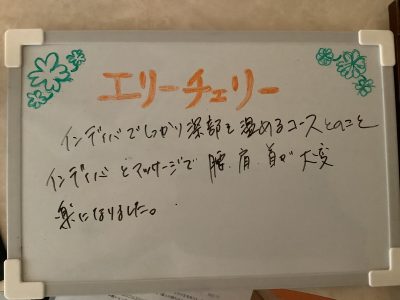 エリーチェリー
インディバでしっかり深部を温めるコースとのこと
インディバとマッサージで腰、肩、首が大変
楽になりました。